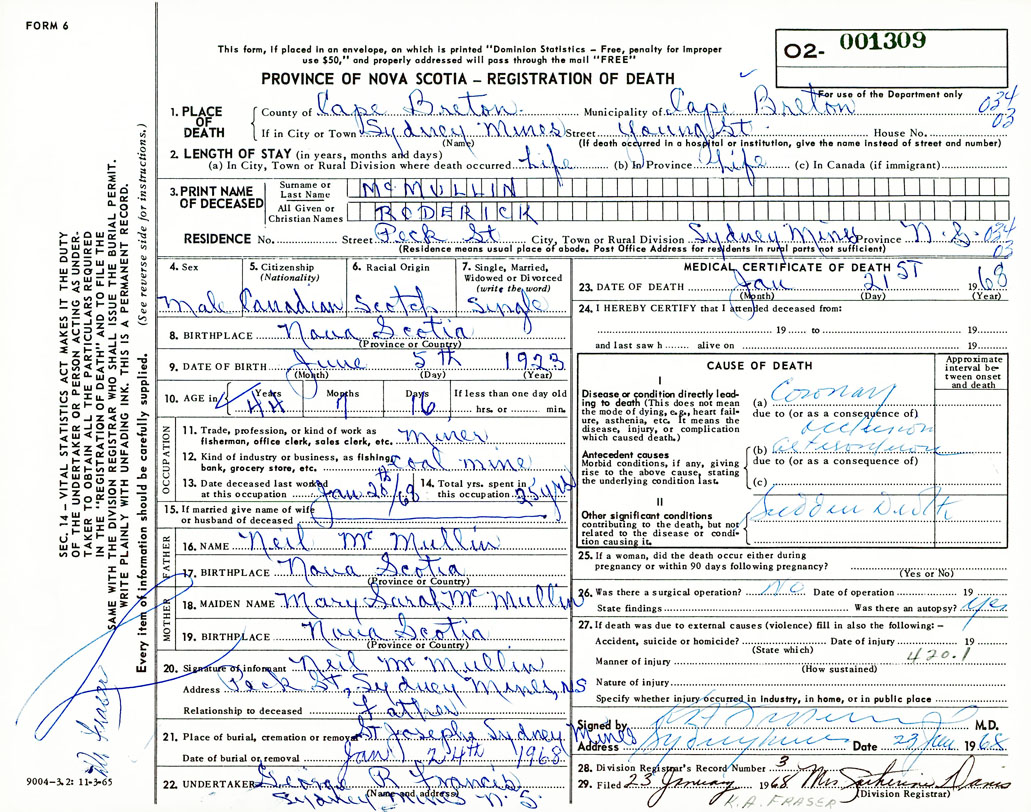 FORM 6
This form, if placed in an envelope, on which is printed "Dominion Statistics – Free, penalty for improper
use $50," and properly addressed will pass through the mail "FREE"
O2- 001309
PROVINCE OF NOVA SCOTIA – REGISTRATION OF DEATH
For use of the Department only
034
03
1. PLACE OF DEATH
County of Cape Breton Municipality of Cape Breton
If in City or Town Sydney Mines Street Young St. House No.
(Name) (If death occurred in a hospital or institution, give the name instead of street and number)
2. LENGTH OF STAY (in years, months and days)
(a) In City, Town or Rural Division where death occurred Life (b) In Province Life (c) In Canada (if immigrant)
3. PRINT NAME OF DECEASED
Surname or Last Name McMULLIN
All Given or Christian Names RODERICK
RESIDENCE No. Street Peck St City, Town or Rural Division Sydney Mines Province N.S. 034
(Residence means usual place of abode. Post Office Address for residents in rural parts not sufficient) 03
4. Sex 5. Citizenship (Nationality) 6. Racial Origin 7. Single, Married, Widowed or Divorced (write the word)
Male Canadian Scotch Single
8. BIRTHPLACE Nova Scotia
(Province or Country)
9. DATE OF BIRTH June 5th 1923
(Month) (Day) (Year)
10. AGE in Years Months Days If less than one day old
44 7 16 hrs. or min.
OCCUPATION
11. Trade, profession, or kind of work as fisherman, office clerk, sales clerk, etc. Miner
12. Kind of industry or business, as fishing, bank, grocery store, etc. Coal mine
13. Date deceased last worked at this occupation Jan 20th/68 14. Total yrs. spent in this occupation 25 yrs
15. If married give name of wife or husband of deceased
FATHER
16. NAME Neil McMullin
17. BIRTHPLACE Nova Scotia
(Province or Country)
MOTHER
18. MAIDEN NAME Mary Sarah McMullin
19. BIRTHPLACE Nova Scotia
(Province or Country)
20. Signature of informant Neil McMullin
Address Peck St, Sydney Mines, NS
Relationship to deceased Father
21. Place of burial, cremation or removal St Josephs Sydney Mines
Date of burial or removal Jan 24th 1968
22. UNDERTAKER George R Francis
(Name and address)
Sydney Mines N.S.
MEDICAL CERTIFICATE OF DEATH
23. DATE OF DEATH Jan 21ST 1968
(Month) (Day) (Year)
24. I HEREBY CERTIFY that I attended deceased from:
19 to 19
and last saw h alive on 19
CAUSE OF DEATH
Approximate interval between onset and death
I
Disease or condition directly leading to death (This does not mean the mode of dying, e.g., heart failure, asthenia, etc. It means the disease, injury, or complication which caused death.)
(a) Coronary
due to (or as a consequence of)
occlusion
Antecedent causes
Morbid conditions, if any, giving rise to the above cause, stating the underlying condition last.
(b)
due to (or as a consequence of)
(c)
II
Other significant conditions
contributing to the death, but not related to the disease or condition causing it.
Sudden Death
25. If a woman, did the death occur either during
pregnancy or within 90 days following pregnancy?
(Yes or No)
26. Was there a surgical operation? No Date of operation 19
State findings Was there an autopsy? yes
27. If death was due to external causes (violence) fill in also the following: –
Accident, suicide or homicide? Date of injury 19
(State which)
Manner of injury 420.1
(How sustained)
Nature of injury
Specify whether injury occurred in Industry, in home, or in public place
Signed by M.D.
Address Sydney Mines Date 23 Jan 1968
28. Division Registrar's Record Number 3
29. Filed 23 January 1968 Mrs Davis
(Division Registrar)
K.A. FRASER
SEC. 14 – VITAL STATISTICS ACT MAKES IT THE DUTY
OF THE UNDERTAKER OR PERSON ACTING AS UNDER-
TAKER TO OBTAIN ALL THE PARTICULARS REQUIRED
IN THE "REGISTRATION OF DEATH" AND TO FILE THE
SAME WITH THE DIVISION REGISTRAR WHO SHALL ISSUE THE BURIAL PERMIT.
WRITE PLAINLY WITH UNFADING INK. THIS IS A PERMANENT RECORD.
Every item of information should be carefully supplied. (See reverse side for instructions.)
Fraser
9004-3.2: 11-3-65